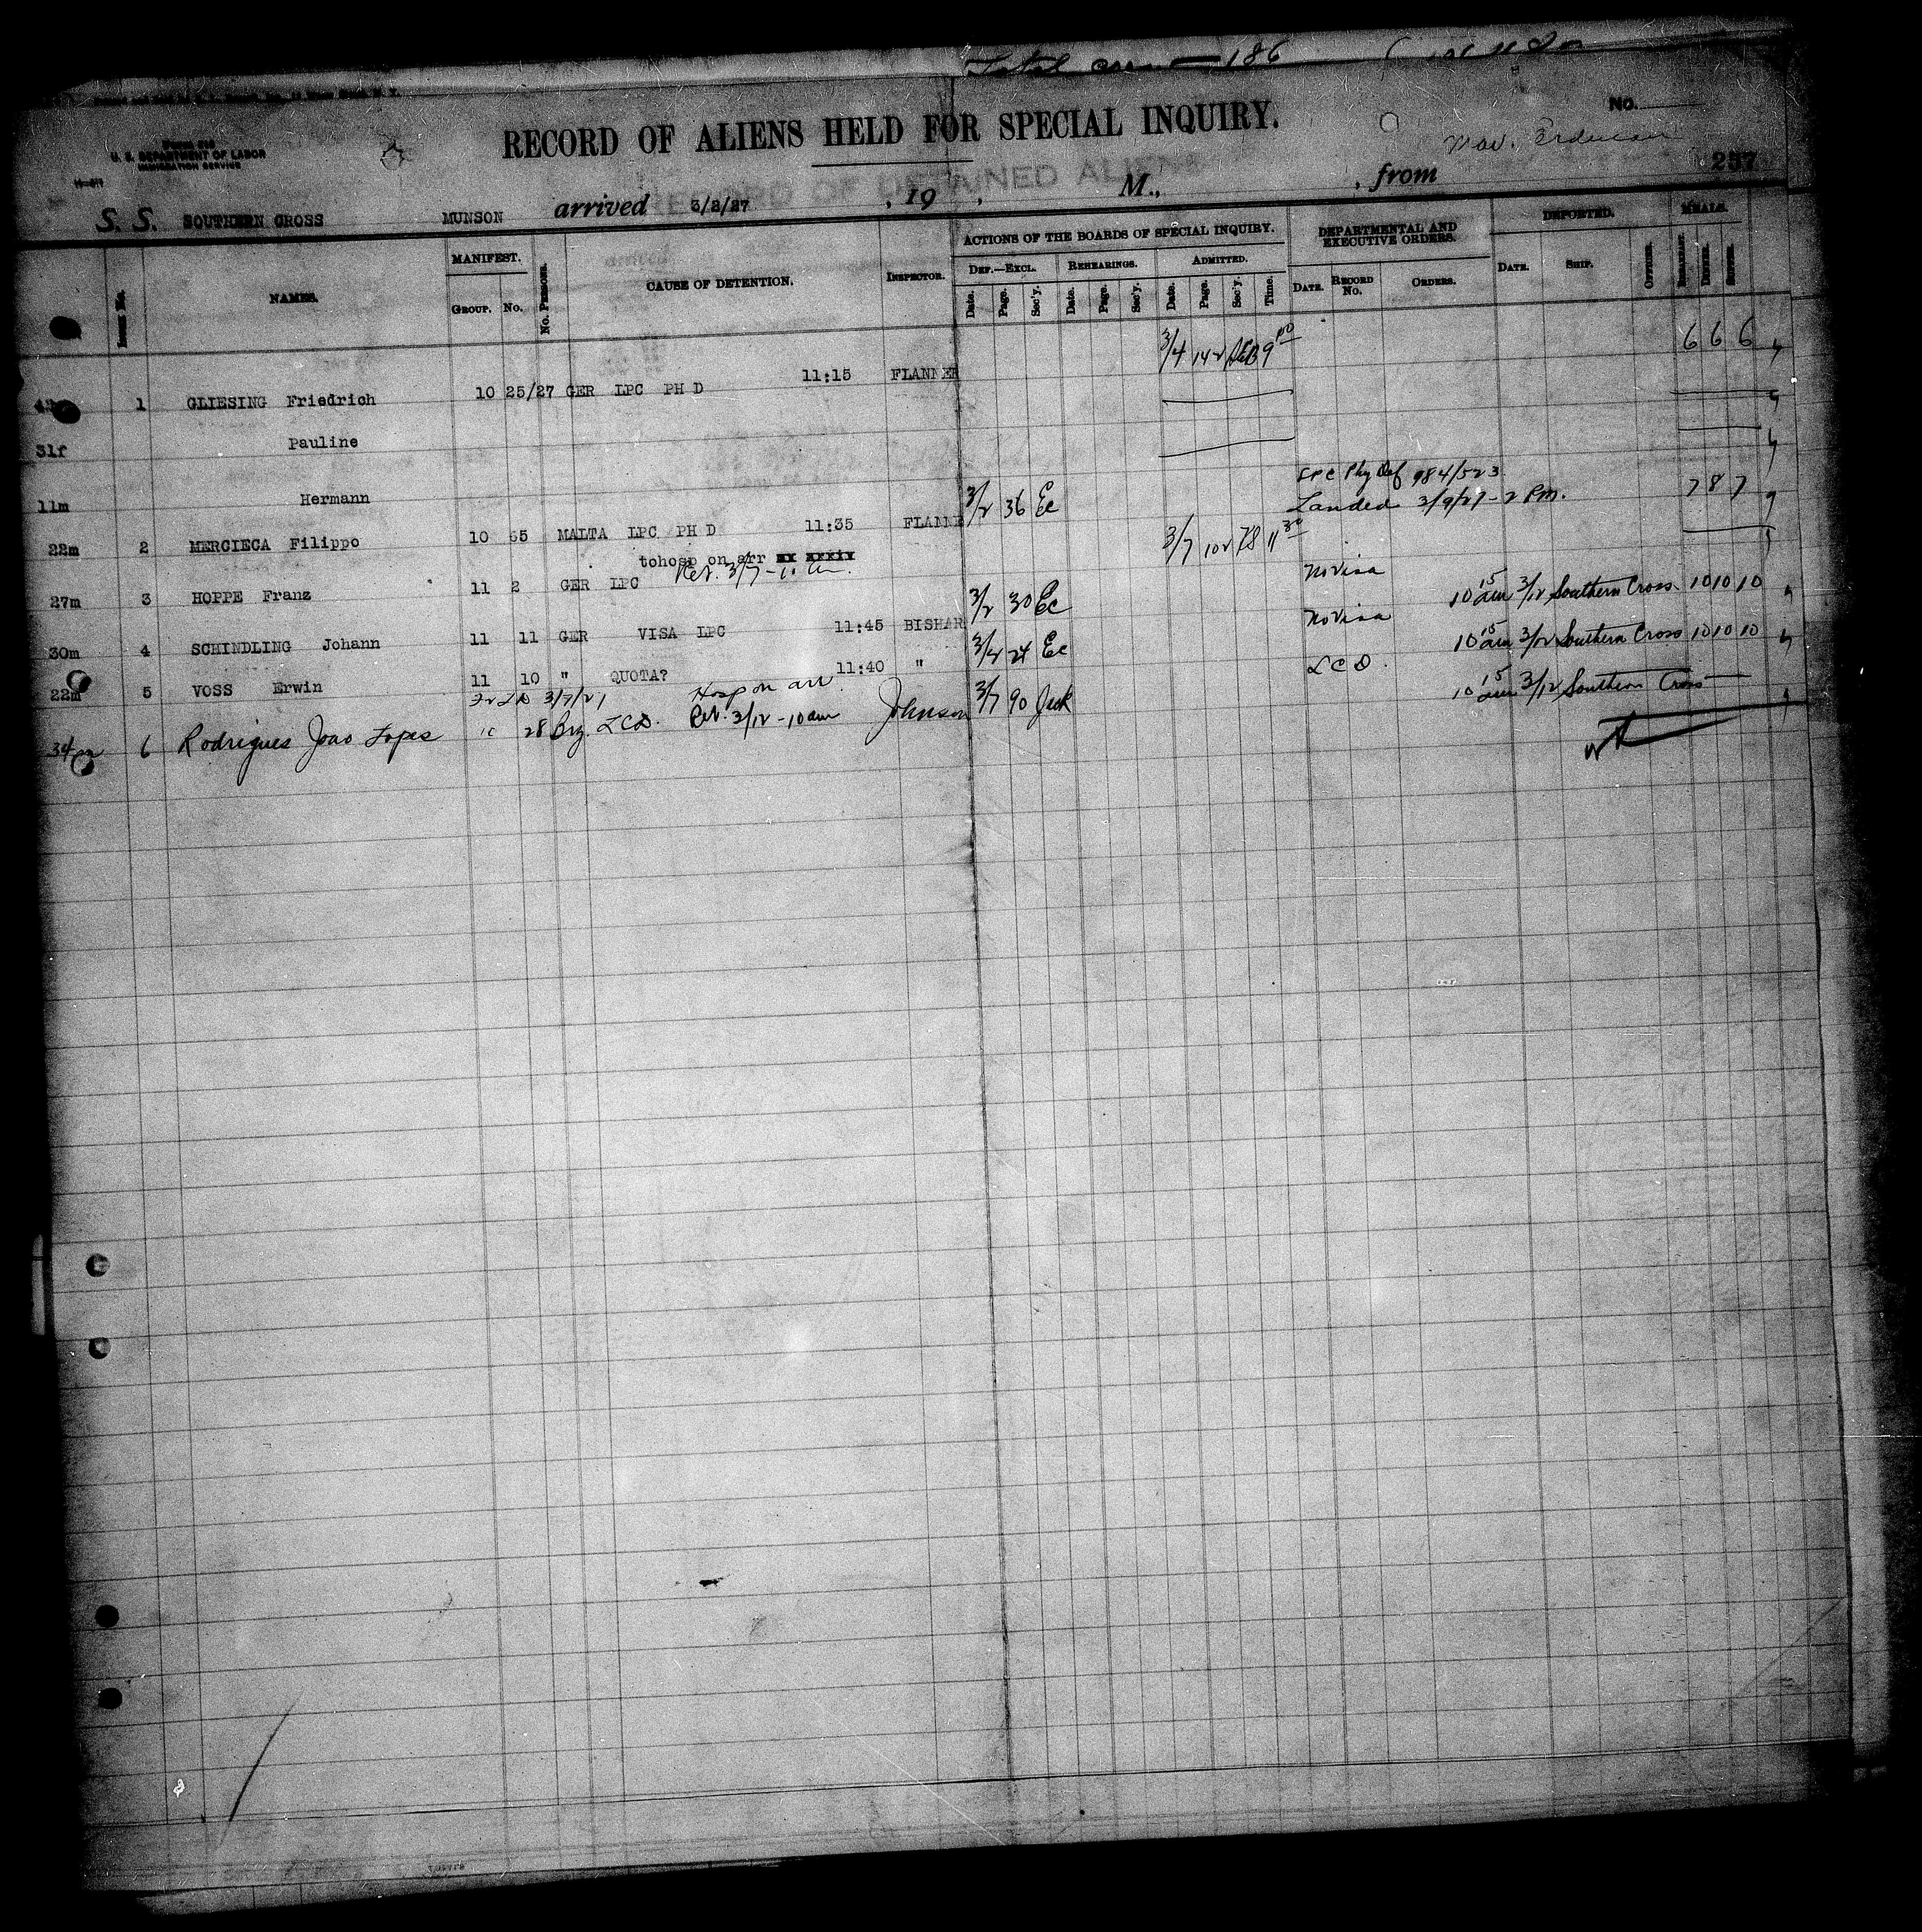 Total 186
RECORD OF ALIENS HELD FOR SPECIAL INQUIRY.
No.
U. S. DEPARTMENT OF LABOR
IMMIGRATION SERVICE
RECORD OF DETAINED ALIENS
257
S. S. SOUTHERN CROSS MUNSON arrived 3/2/27 , 19 , M., , from
NAMES. MANIFEST. GROUP. NO. NO. PERSONS. CAUSE OF DETENTION. INSPECTOR.
ACTIONS OF THE BOARDS OF SPECIAL INQUIRY. DEPARTMENTAL AND EXECUTIVE ORDERS. DEPORTED. MEALS.
DEF.—EXCL. REHEARINGS. ADMITTED.
Date. Page. Sec'y. Date. Page. Sec'y. Date. Page. Sec'y. Time. DATE. RECORD NO. ORDERS. DATE. SHIP. OFFICER. BREAKFAST. DINNER. SUPPER.
1 GLIESING Friedrich 10 25/27 GER LPC PH D 11:15 FLANNER 3/4 142 9 00 6 6 6
31f Pauline
11m Hermann
LPC Phy Def 984/523
22m 2 MERCIECA Filippo 10 65 MALTA LPC PH D 11:35 FLANNE 3/2 36 Ec Landed 3/9/27 - 2 Pm. 7 8 7
tohosp on arr
27m 3 HOPPE Franz 11 2 GER LPC Ret. 3/7 - 3/7 102 11 30
30m 4 SCHINDLING Johann 11 11 GER VISA LPC 11:45 BISHAR 3/2 30 Ec No Visa 10 15 am 3/12 Southern Cross 10 10 10
22m 5 VOSS Erwin 11 10 " QUOTA? 11:40 " 3/2 24 Ec No Visa 10 15 am 3/12 Southern Cross 10 10 10
3/7/27 Hosp on arr
34m 6 Rodrigues Joao Lopes " 28 Brz. LCD. Ret. 3/12 - 10 am Johnson 3/7 90 Jack LCD. 10 15 am 3/12 Southern Cross